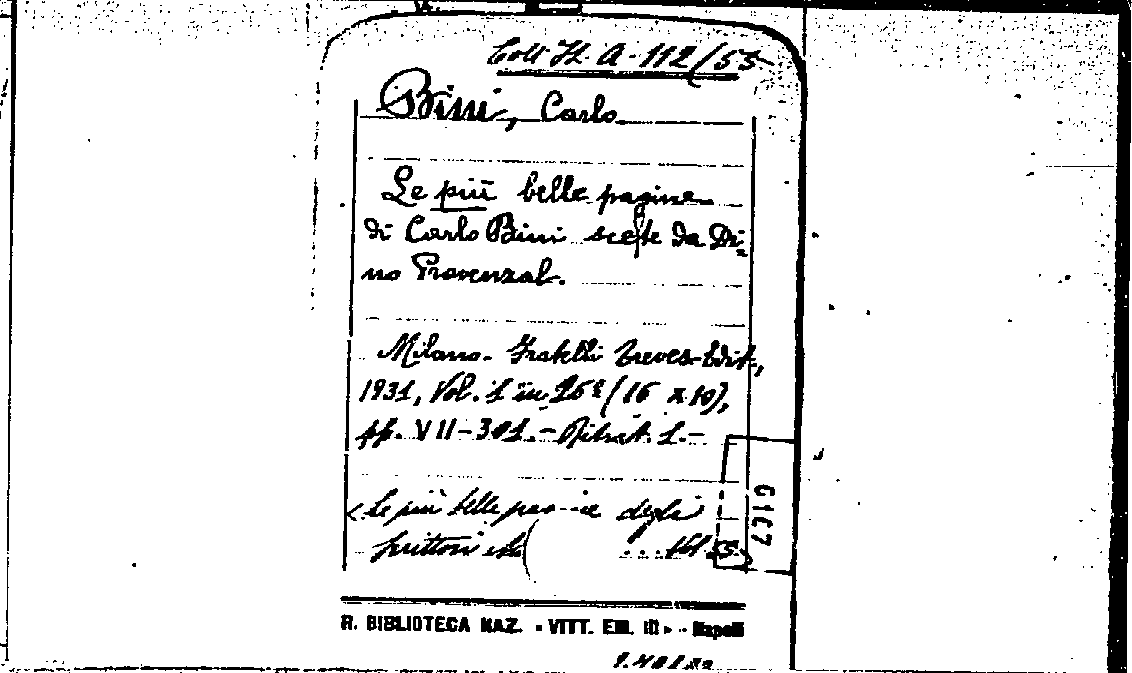 Coll. It. A. 112/55
Bini, Carlo
Le più belle pagine
di Carlo Bini scelte da Di=
no Provenzal.
Milano. Fratelli Treves. Edit.,
1931, Vol. 1 in 16º (16 x 10),
pp. VII-301.- Ritrat. 1.-
Le più belle pagine degli
Vol 55
6167
R. BIBLIOTECA NAZ. « VITT. EM. III » - Napoli